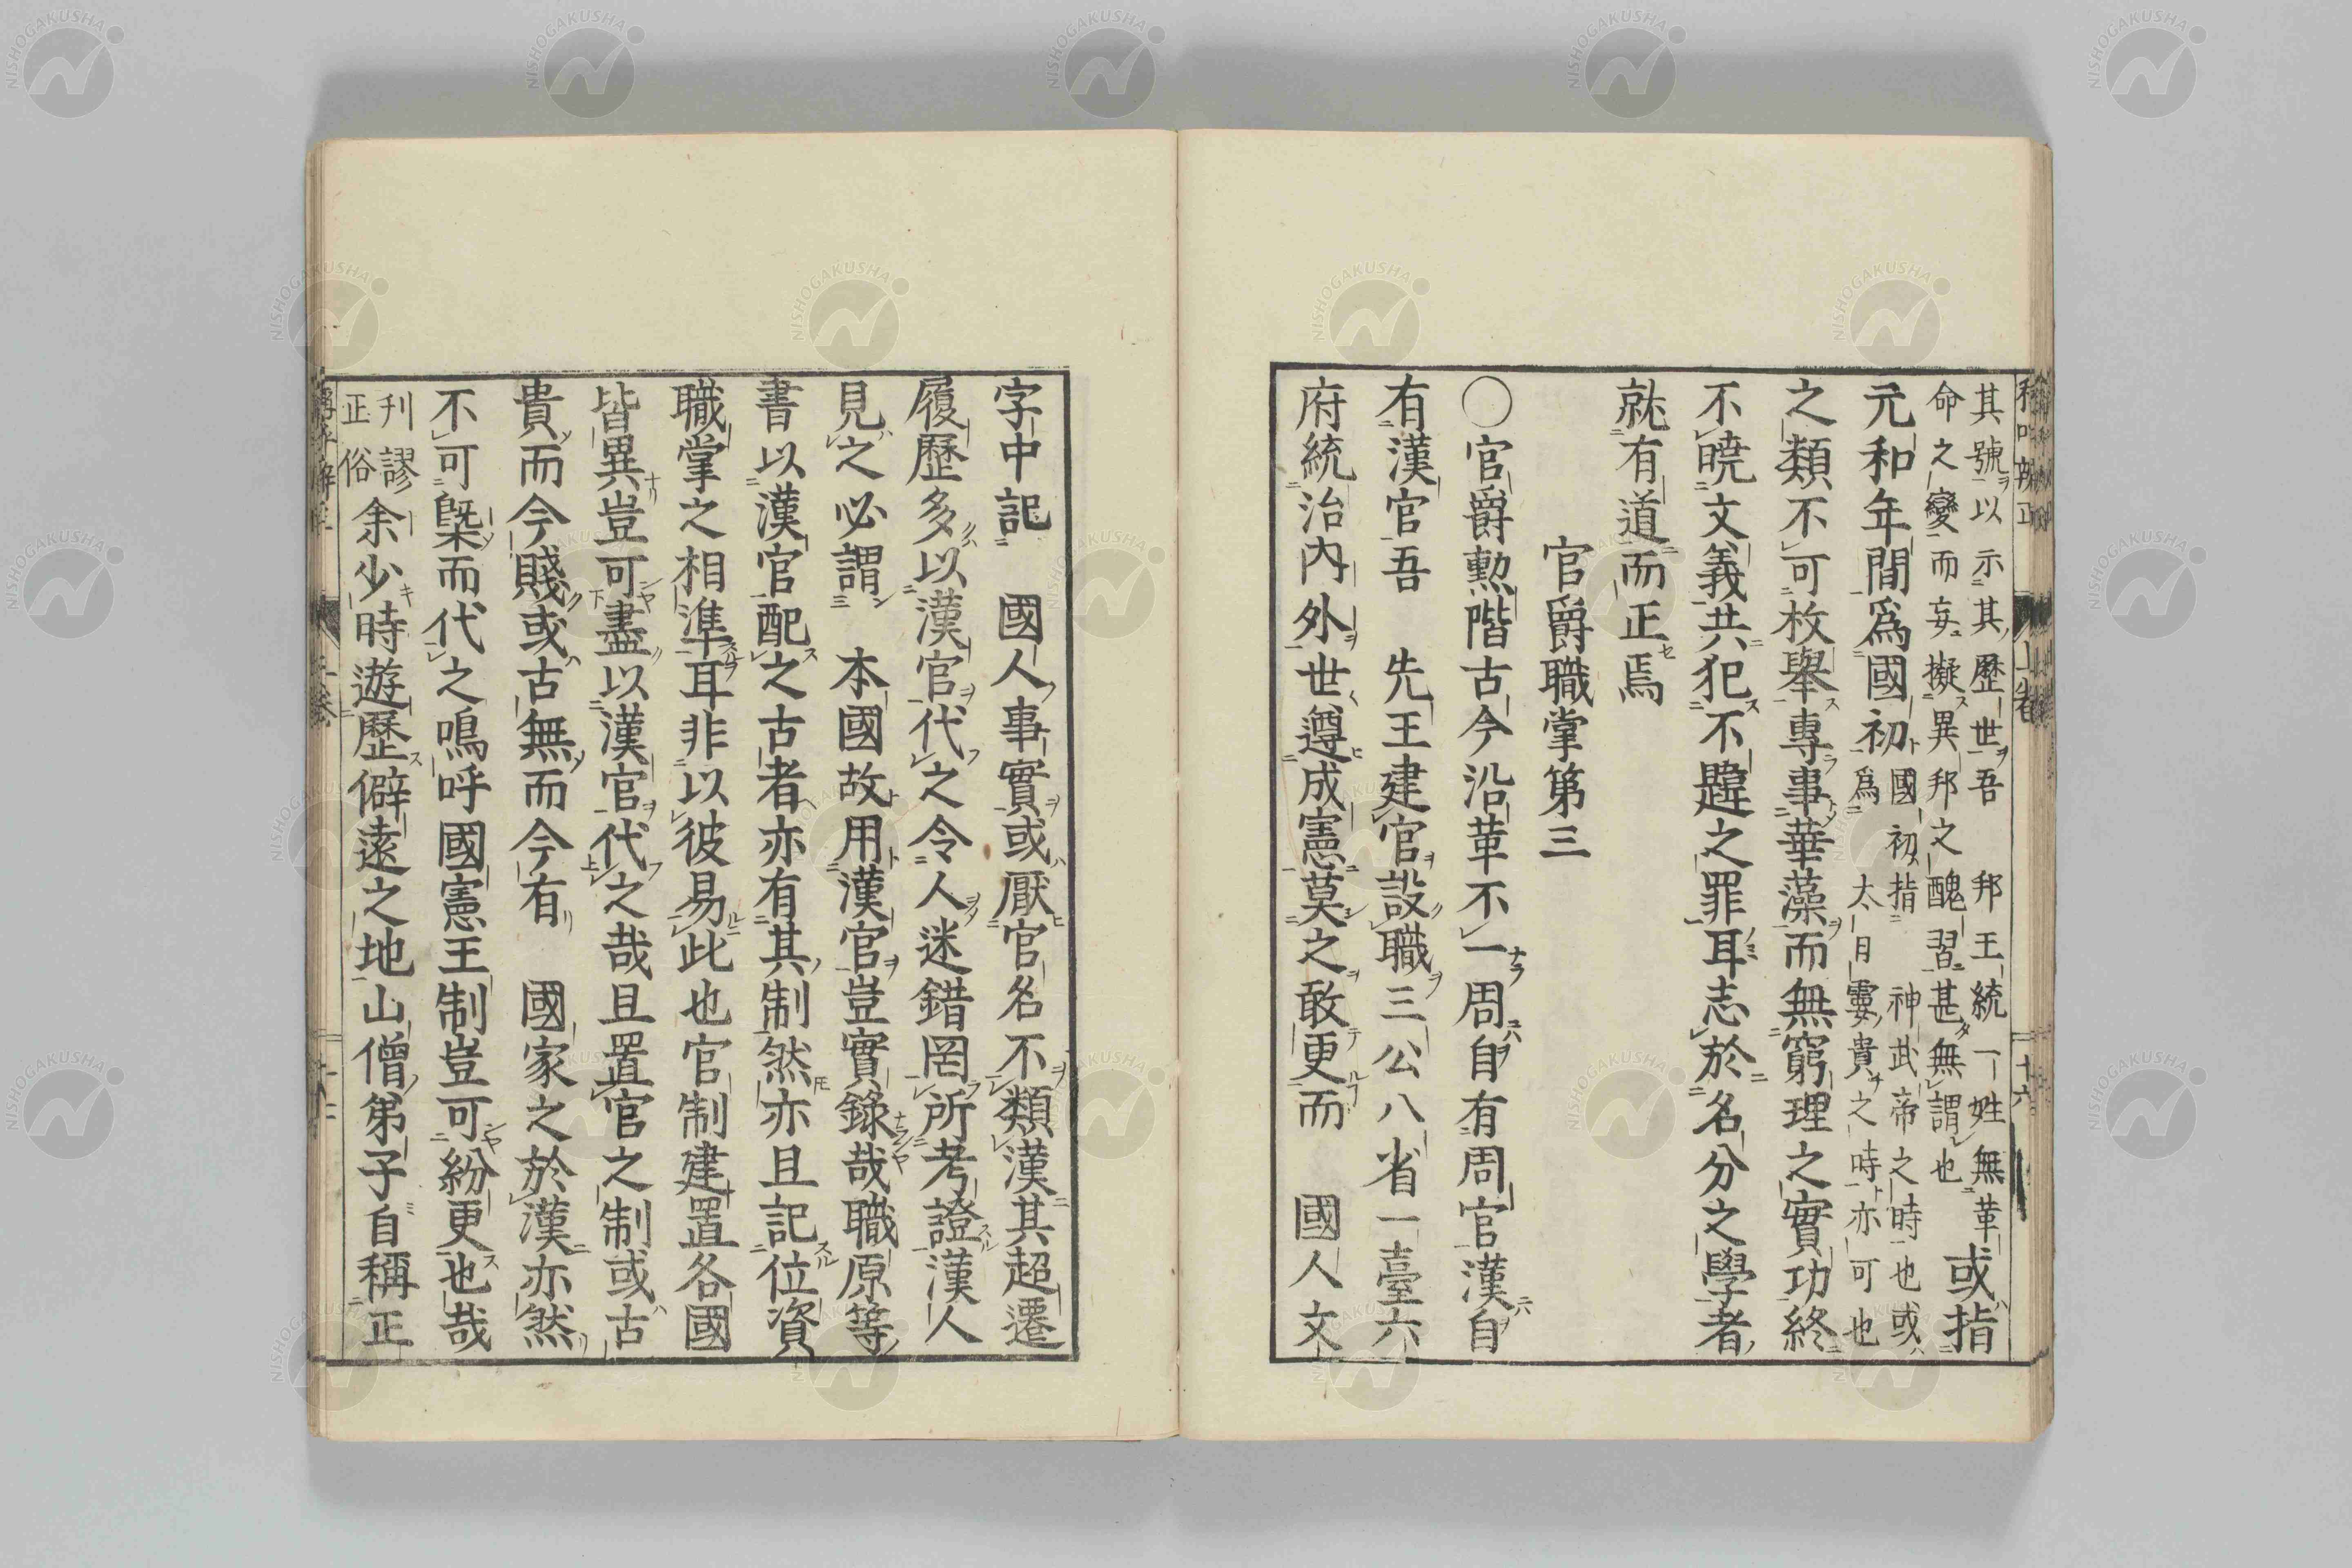 其號以示其歷世吾　邦王統一姓無革
命之變而妄擬異邦之醜習甚無謂也
或指
元和年間爲國初
國初指神武帝之時也或
爲太日孁貴之時亦可也
之類不可枚舉專事華藻而無窮理之實功終
不曉文義共犯不韙之罪耳志於名分之學者
就有道而正焉
官爵職掌第三
○官爵勲階古今沿革不一周自有周官漢自
有漢官吾　先王建官設職三公八省一臺六
府統治內外世遵成憲莫之敢更而　國人文
字中記　國人事實或厭官名不類漢其超遷
履歷多以漢官代之令人迷錯罔所考證漢人
見之必謂　本國故用漢官豈實錄哉職原等
書以漢官配之古者亦有其制然亦且記位資
職掌之相準耳非以彼易此也官制建置各國
皆異豈可盡以漢官代之哉且置官之制或古
貴而今賤或古無而今有　國家之於漢亦然
不可槩而代之鳴呼國憲王制豈可紛更也哉
刋謬
正俗
余少時遊歷僻遠之地山僧弟子自稱正
十六
NISHOGAKUSHA